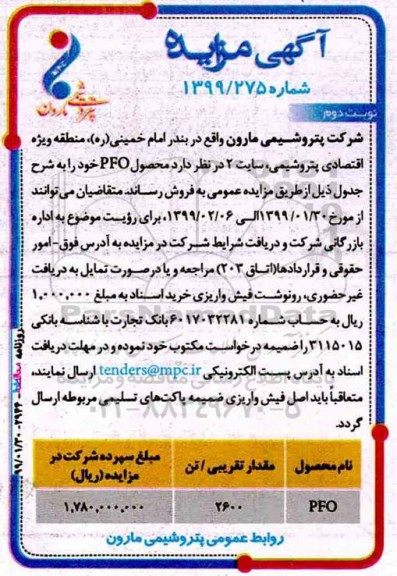 آگهی مزایده
شماره ۱۳۹۹/۲۷۵
پتروشیمی مارون
نوبت دوم
شرکت پتروشیمی مارون واقع در بندر امام خمینی(ره)، منطقه ویژه
اقتصادی پتروشیمی، سایت ۲ در نظر دارد محصول PFO خود را به شرح
جدول ذیل از طریق مزایده عمومی به فروش رساند. متقاضیان می‌توانند
از مورخ ۱۳۹۹/۰۱/۳۰ الی ۱۳۹۹/۰۲/۰۶، برای رؤیت موضوع به اداره
بازرگانی شرکت و دریافت شرایط شرکت در مزایده به آدرس فوق-امور
حقوقی و قراردادها(اتاق ۲۰۳) مراجعه و یا درصورت تمایل به دریافت
غیرحضوری، رونوشت فیش واریزی خرید اسناد به مبلغ ۱,۰۰۰,۰۰۰
ریال به حساب شماره ۶۰۱۷۰۳۲۲۸۱ بانک تجارت با شناسه بانکی
۳۱۱۵۰۱۵ را ضمیمه درخواست مکتوب خود نموده و در مهلت دریافت
اسناد به آدرس پست الکترونیکی tenders@mpc.ir ارسال نمایند،
متعاقباً باید اصل فیش واریزی ضمیمه پاکت‌های تسلیمی مربوطه ارسال
گردد.
نام محصول مقدار تقریبی / تن مبلغ سپرده شرکت در مزایده (ریال)
PFO ۲۶۰۰ ۱,۷۸۰,۰۰۰,۰۰۰
روابط عمومی پتروشیمی مارون